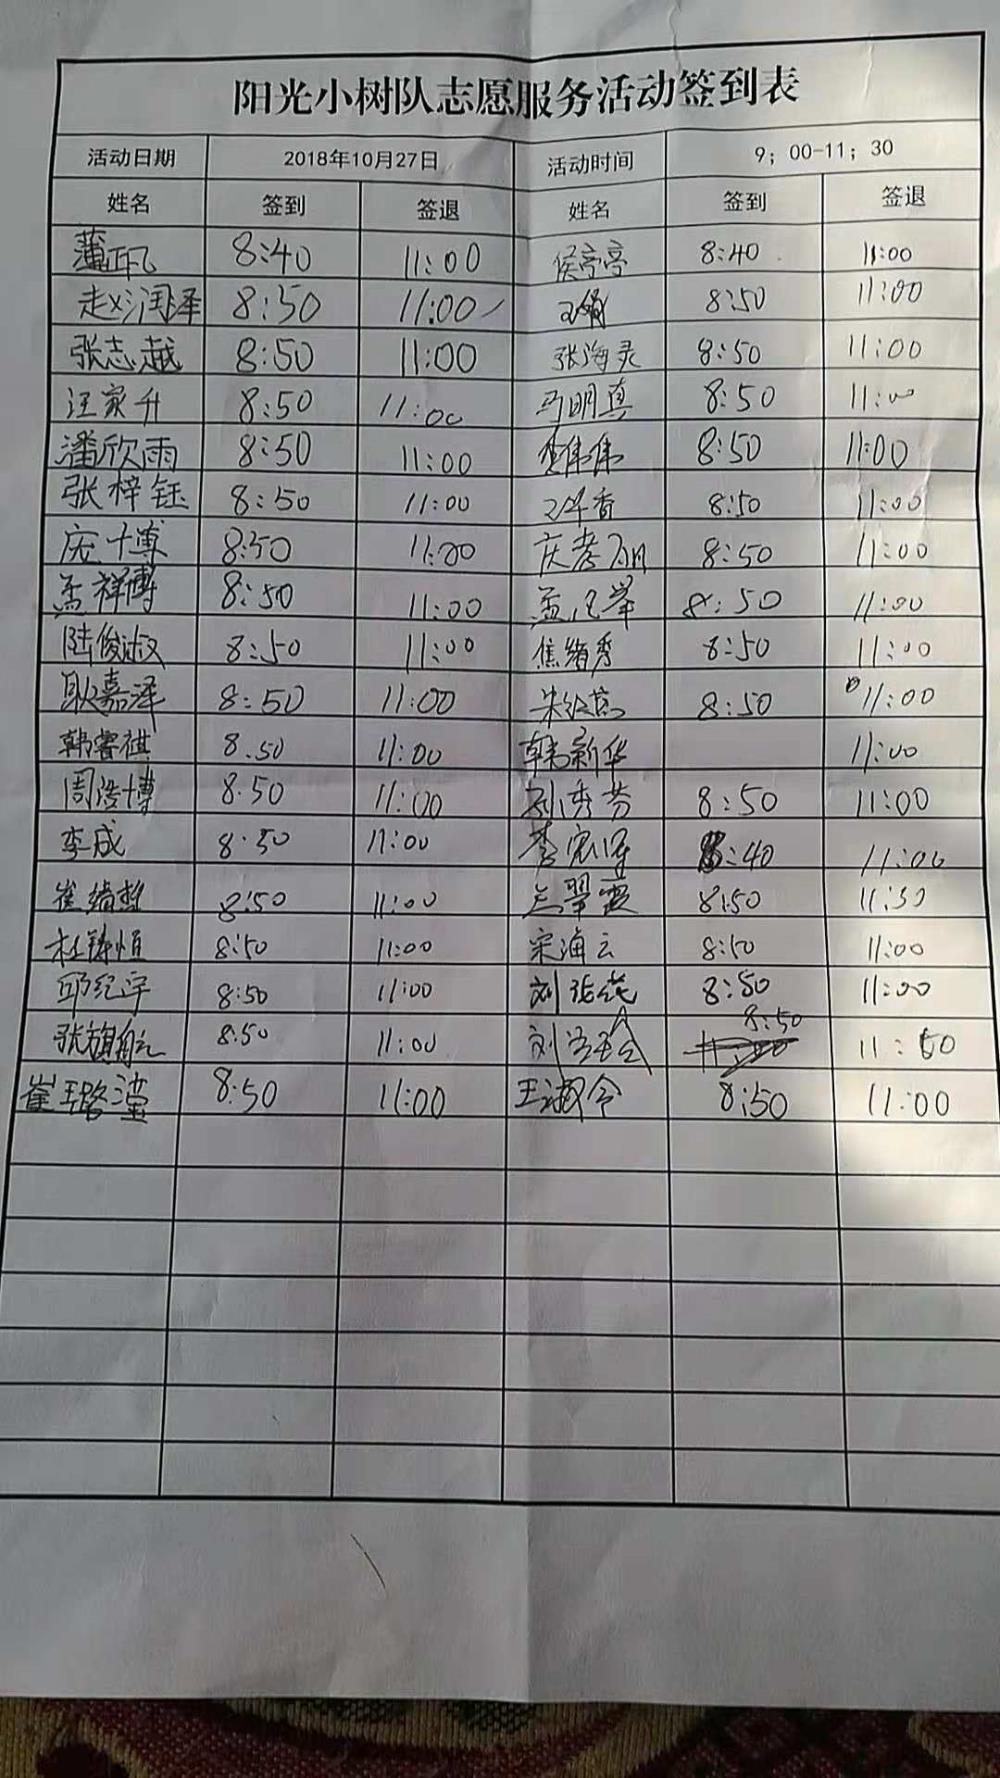 阳光小树队志愿服务活动签到表
活动日期 2018年10月27日 活动时间 9；00-11；30
姓名 签到 签退 姓名 签到 签退
8:40 11:00 侯亭亭 8:40 11:00
赵润泽 8:50 11:00 8:50 11:00
张志越 8:50 11:00 张海灵 8:50 11:00
汪家升 8:50 11:00 马明真 8:50 11:00
潘欣雨 8:50 11:00 李伟伟 8:50 11:00
张梓钰 8:50 11:00 8:50 11:00
庞博 8:50 11:00 8:50 11:00
孟祥博 8:50 11:00 孟 8:50 11:00
陆俊淑 8:50 11:00 焦绪秀 8:50 11:00
耿嘉泽 8:50 11:00 8:50 11:00
韩睿祺 8.50 11:00 韩新华 11:00
周浩博 8.50 11:00 孙秀芬 8:50 11:00
李成 8.50 11:00 8:40 11:00
崔绪哲 8:50 11:00 兰翠霞 8:50 11:30
杜铸恒 8:50 11:00 宋海云 8:50 11:00
邱纪宇 8:50 11:00 刘 8:50 11:00
张旗航 8:50 11:00 刘 8:50 11:50
崔璐滢 8:50 11:00 王淑令 8:50 11:00